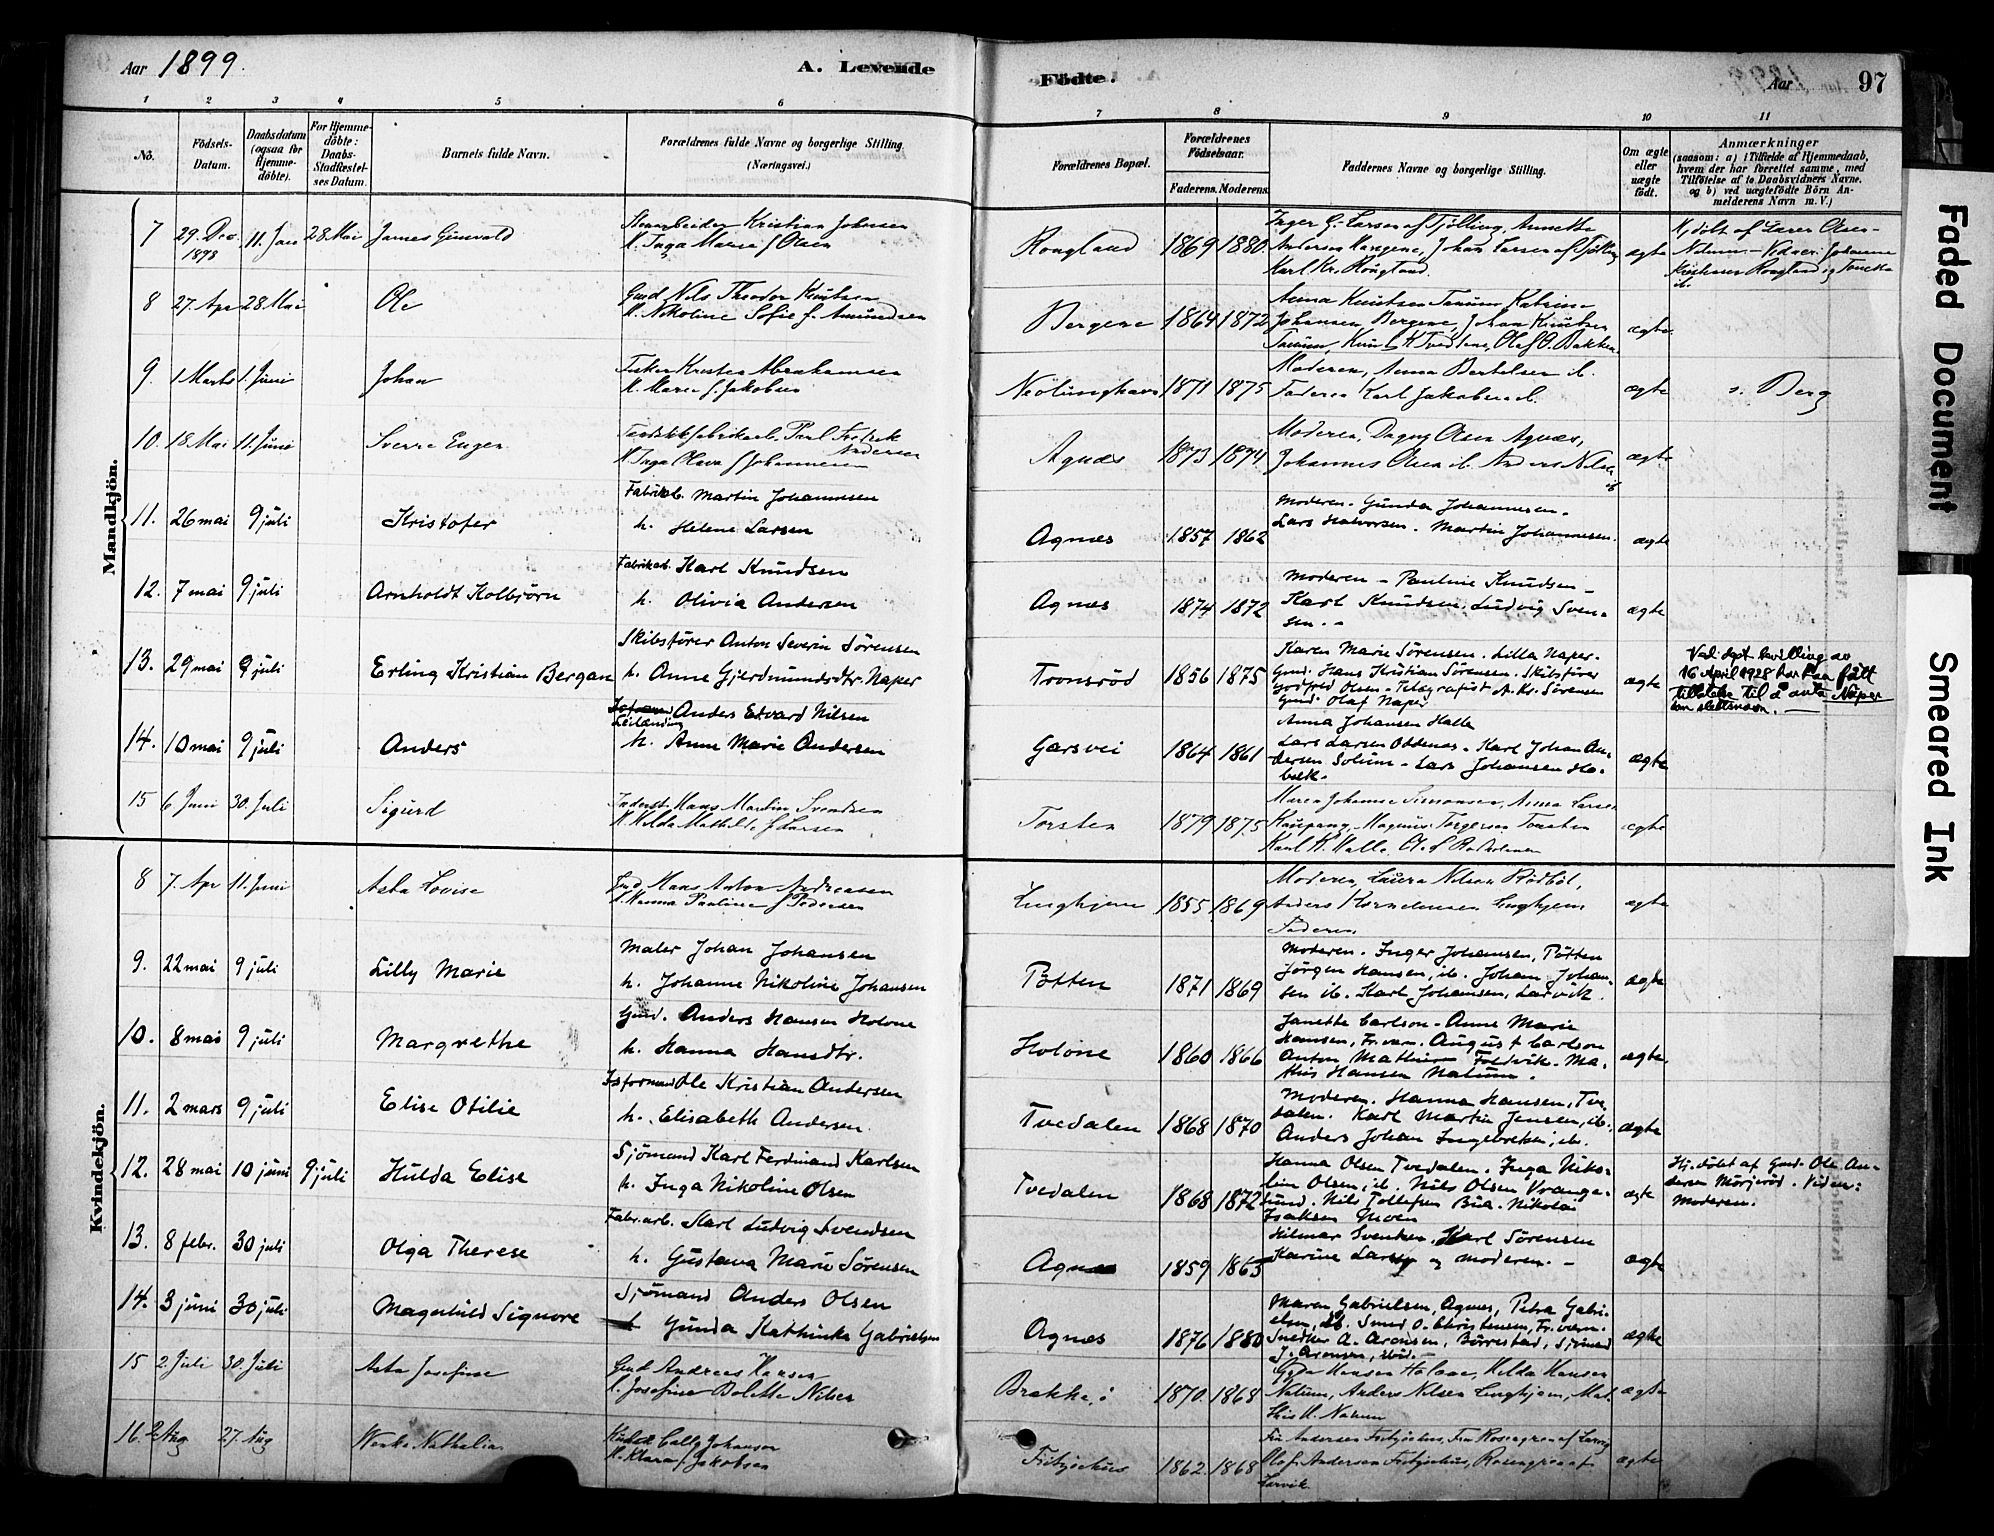 Aar 1899. A. Levende Födte. Aar 97
1 2 3 4 5 6 7 8 9 10 11
No. Födsels-Datum. Daabsdatum (ogsaa for Hjemmedöbte). For Hjemmedöbte: Daabs-Stadfæstelses Datum. Barnets fulde Navn. Forældrenes fulde Navne og borgerlige Stilling. (Næringsvei.) Forældrenes Bopæl. Forældrenes Födselsaar. Faderens. Moderens. Faddernes Navne og borgerlige Stilling. Om ægte eller uægte födt. Anmærkninger (saasom: a) i Tilfælde af Hjemmedaab, hvem der har forrettet samme, med Tilföielse af to Daabsvidners Navne, og b) ved uægtefödte Börn Anmelderens Navn m. V.)
Mandkjön.
7 29. Dec 1898 11. Jan 28. Mai James Gunvald
Kristian Johansen
H. Inga Marie f. Olsen
Rougland 1869 1880. Inger G. Larsen af Tjölling, Annette
Andersen Johan Larsen af Tjölling
Karl Kr. Rougland. ægte
8 27. Apr 28 Mai Ole
Gmd Nils Theodor Knutsen
H. Nikoline Sofie f. Amundsen
Bergene 1864 1872 Anna Knutsen Tanum Katrine
Johansen Bergene, Johan Knutsen
Tanum, Knut K Tvedtene, Olaf O. Bakken. ægte
9. 1 Marts 1. Juni Johan
Fisker Kristen Abrahamsen
H. Maren f. Jakobsen
Nevlunghavn 1871 1875 Moderen, Anna Bertelsen ib.
Faderen Karl Jakobsen ib. ægte s. Berg
10. 18 Mai 11. Juni Sverre Eugen
Paul Fredrik Andersen
H. Inga Olava f Johannesen
Agnæs 1873 1874 Moderen, Dagny Olsen Agnæs,
Johannes Olsen ib. Anders Nilsen ib ægte
11. 26 mai 9 juli Kristofer
Fabrikarb. Martin Johannesen
h. Helene Larsen
Agnæs 1857 1862 Moderen. Gunda Johannesen.
Lars Halvorsen. Martin Johannesen. ægte
12. 7 mai 9 juli Arnholdt Kolbjörn
Fabrikarb. Karl Knudsen
h. Olivia Andersen
Agnæs 1874 1872 Moderen - Pauline Knudsen -
Karl Knudsen. Ludvig Svensen. - ægte
13. 29 mai 9 juli Erling Kristian Bergan
Skibsförer Anton Severin Sörensen
h. Anne Gjerdmundsdtr. Naper
Tronsröd 1856 1875 Karen Marie Sörensen. Lilla Naper.
Gmd. Hans Kristian Sörensen. Skibsförer
Godfred Olsen - Telegrafist A. Kr. Sörensen
Gmd. Olaf Naper ægte
Ved dept. bevilling av
16 April 1928 har han fått
tillatelse til å anta Naper
som slektsnavn. -
14. 10 mai 9 juli Anders
Leilænding Anders Edvard Nilsen
h. Anne Marie Andersen
Garsvei 1864 1861 Anna Johansen Halle
Lars Larsen Oddenæs. Karl Johan Andersen
Solum - Lars Johansen Ho- ægte
15 6 Juni 30. Juli Sigurd
Inderst Hans Martin Svendsen
H. Hilda Mathilde f Larsen
Torsten 1879 1875 Maren Johanne Simonsen, Anna Larsen
Kaupang, Magnus Torgersen Torsten
Karl K. Halle, ægte
Kvindekjön.
8 7. Apr 11. Juni Asta Lovise
Gmd. Hans Anton Andreasen
H. Hanna Pauline f Pedersen
Linghjem 1855 1869 Moderen, Laura Nilsen Rödböl,
Anders Kornelensen Linghjem
Faderen. ægte
9. 22 mai 9 juli Lilly Marie
Maler Johan Johansen
h. Johanne Nikoline Johansen
Pötten 1871 1869 Moderen. Inger Johansen, Pötten
Jörgen Hansen, ib. Johan Johansen
ib. Karl Johansen, Larvik. ægte
10. 8 mai 9 juli Margrethe
Gmd. Anders Hansen Holone
h. Hanna Hansdtr.
Holone 1860 1866 Janette Carlson - Anne Marie
Hansen, Fr.værn. August Carlson
Anton Mathisen Foldvik. Mathis
Hansen Nalum. ægte
11. 2 mars 9 juli Elise Otilie
Isformand Ole Kristian Andersen
h. Elisabeth Andersen.
Tvedalen 1868 1870 Moderen. Hanna Hansen, Tvedalen.
Karl Martin Jensen, ib.
Anders Johan Ingebretsen, ib. ægte
12. 28 mai 10 juni 9 juli Hulda Elise
Sjömand Karl Ferdinand Karlsen
h. Inga Nikoline Olsen
Tvedalen 1868 1872 Hanna Olsen Tvedalen. Inga Nikoline
Olsen, ib. Nils Olsen Vrangesund.
Nils Tollefsen Bua. Nikolai
Isaksen Moen ægte
Hj. döbt af Gmd. Ole Andersen
Mörjeröd. Vidner:
Moderen.
13. 8 febr. 30 juli Olga Therese
Fabr.arb. Karl Ludvig Svendsen
h. Gustava Marie Sörensen
Agnæs 1859 1863 Hilmar Svendsen. Karl Sörensen
Karine Larsen og moderen. - ægte
14. 3 juni 30 juli Magnhild Signore
Sjömand Anders Olsen
h Gunda Kathinka Gabrielsen
Agnæs 1876 1880 Maren Gabrielsen, Agnæs, Petra Gabrielsen,
ib. Smed O. Christensen, Fr.værn.
Snedker A. Aronsen, Börrestad, Sjömand
J. Aronsen, ibid. - ægte
15 2. Juli 30. Juli Asta Josefine
Gmd Andreas Hansen
H. Josefine Bolette Nilsen
Brække, 1870. 1868 Gyda Hansen Holane, Hilda Hansen
Nalum, Anders Nilsen Linghjem, Mathis
H. Nalum ægte
16. 2 Aug 27. Aug Nathalia
Calle Johanson
H. Klara f Jakobsen
Fritzöehus 1862. 1868 Fru Andersen Fritzöehus, Fru Rosengren af Larvig
Olaf Andersen Fritzöehus, Rosengren af
Larvik ægte
Faded Document
Smeared Ink